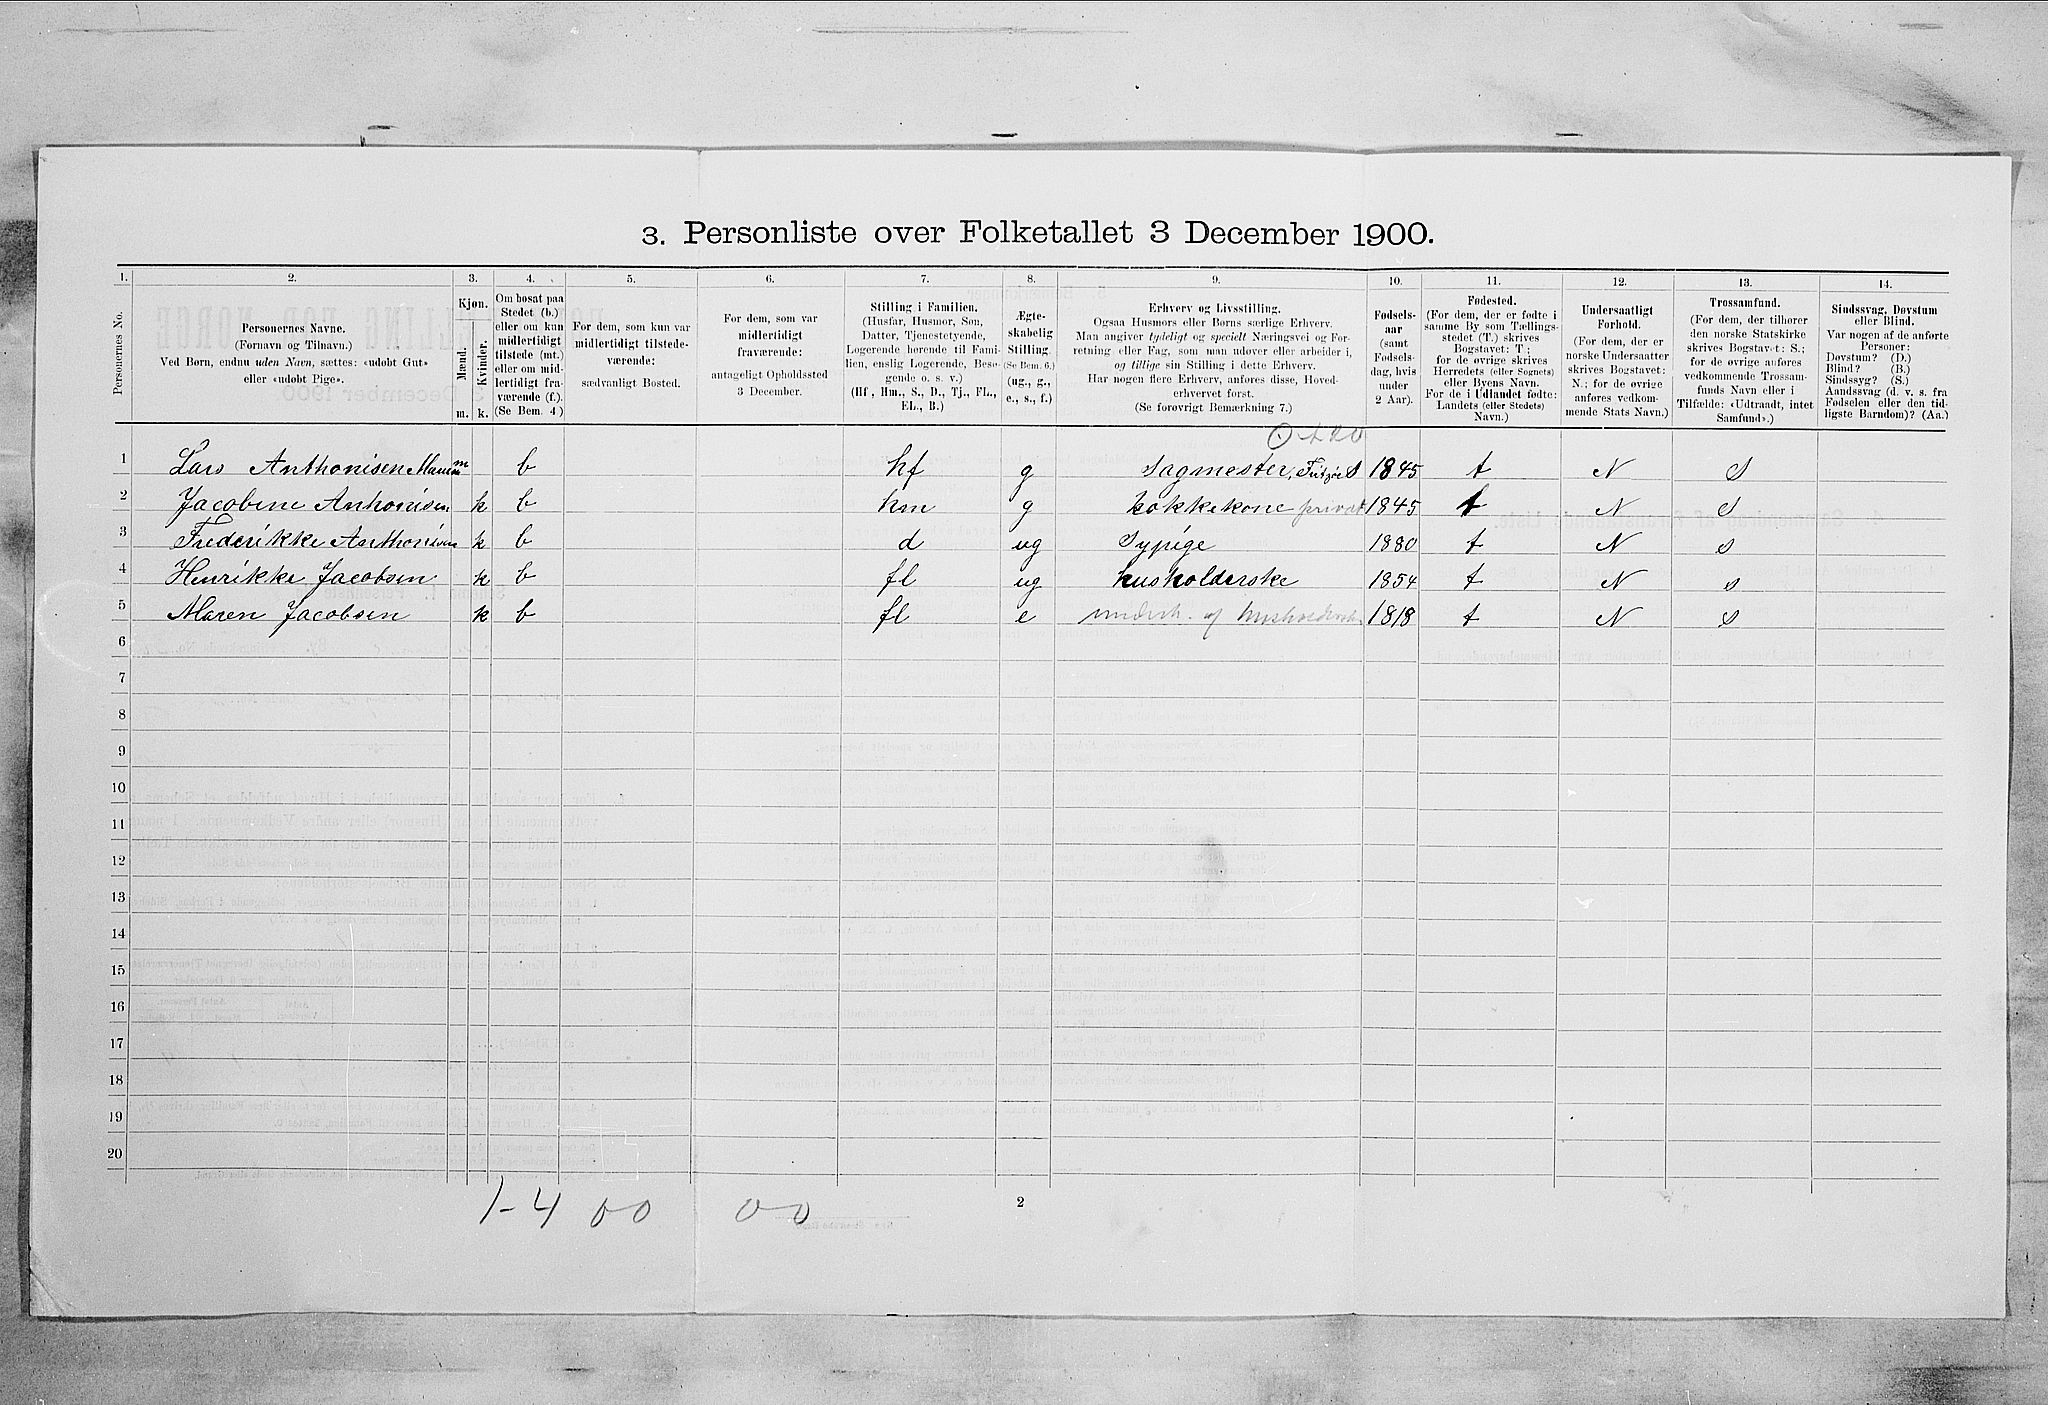 3. Personliste over Folketallet 3 December 1900.
1. 2. 3. 4. 5. 6. 7. 8. 9. 10. 11. 12. 13. 14.
Personernes No.
Personernes Navne.
(Fornavn og Tilnavn.)
Ved Børn, endnu uden Navn, sættes: «udøbt Gut»
eller «udøbt Pige».
Kjøn.
Mænd.
Kvinder.
m. k.
Om bosat paa
Stedet (b.)
eller om kun
midlertidigt
tilstede (mt.)
eller om mid-
lertidigt fra-
værende (f.).
(Se Bem. 4.)
For dem, som kun var
midlertidigt tilstede-
værende:
sædvanligt Bosted.
For dem, som var
midlertidigt
fraværende:
antageligt Opholdssted
3 December.
Stilling i Familien.
(Husfar, Husmor, Søn,
Datter, Tjenestetyende,
Logerende hørende til Fami-
lien, enslig Logerende, Besø-
gende o. s. v.)
(Hf., Hm., S., D., Tj., FL.,
EL., B.)
Ægte-
skabelig
Stilling.
(Se Bem. 6.)
(ug., g.,
e., s., f.)
Erhverv og Livsstilling.
Ogsaa Husmors eller Børns særlige Erhverv.
Man angiver tydeligt og specielt Næringsvei og For-
retning eller Fag, som man udøver eller arbeider i,
og tillige sin Stilling i dette Erhverv.
Har nogen flere Erhverv, anføres disse, Hoved-
erhvervet forst.
(Se forøvrigt Bemærkning 7.)
Fødsels-
aar
(samt
Fødsels-
dag, hvis
under
2 Aar).
Fødested.
(For dem, der er fødte i
samme By som Tællings-
stedet (T.) skrives
Bogstavet: T;
for de øvrige skrives
Herredets (eller Sognets)
eller Byens Navn.
For de i Udlandet fødte:
Landets (eller Stedets)
Navn.)
Undersaatligt
Forhold.
(For dem, der er
norske Undersaatter
skrives Bogstavet:
N.; for de øvrige
anføres vedkom-
mende Stats Navn.)
Trossamfund.
(For dem, der tilhører
den norske Statskirke
skrives Bogstavet: S.;
for de øvrige anføres
vedkommende Trossam-
funds Navn eller i
Tilfælde: «Udtraadt, intet
Samfund».)
Sindssvag, Døvstum
eller Blind.
Var nogen af de anførte
Personer:
Døvstum? (D.)
Blind? (B.)
Sindssyg? (S.)
Aandssvag (d. v. s. fra
Fødselen eller den tid-
ligste Barndom)? (Aa.)
1 Lars Anthonisen m b hf g Sagmester, 1845 t N S
2 Jacobine Anthonisen k b hm g privat 1845 t N S
3 Frederikke Anthonisen k b d ug Sypige 1880 t N S
4 Henrikke Jacobsen k b fl ug husholderske 1854 t N S
5 Maren Jacobsen k b fl e 1818 t N S
6
7
8
9
10
11
12
13
14
15
16
17
18
19
20
1-4 00 00
2